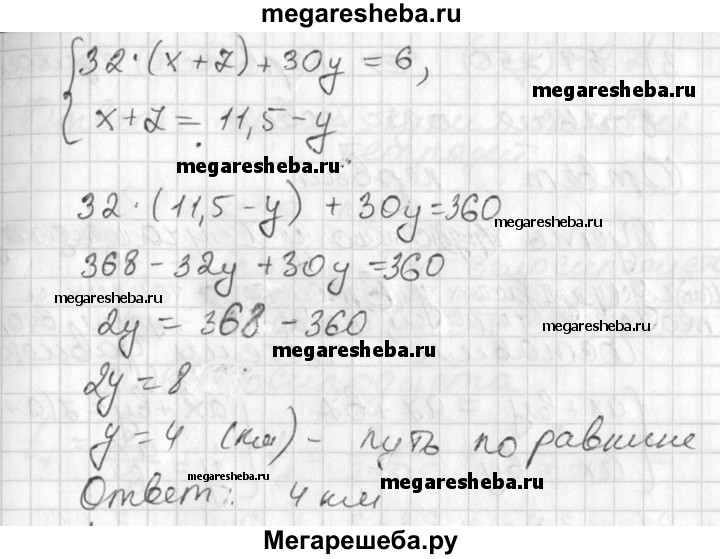 megaresheba.ru
32·(x+z)+30y=6,
megaresheba.ru
x+z=11,5-y
megaresheba.ru
32·(11,5-y)+30y=360
megaresheba.ru
368-32y+30y=360
megaresheba.ru
2y=368-360
megaresheba.ru
megaresheba.ru
2y=8
y=4 (км) - путь по равнине
megaresheba.ru
megaresheba.ru
Ответ: 4 км
Мегарешеба.ру